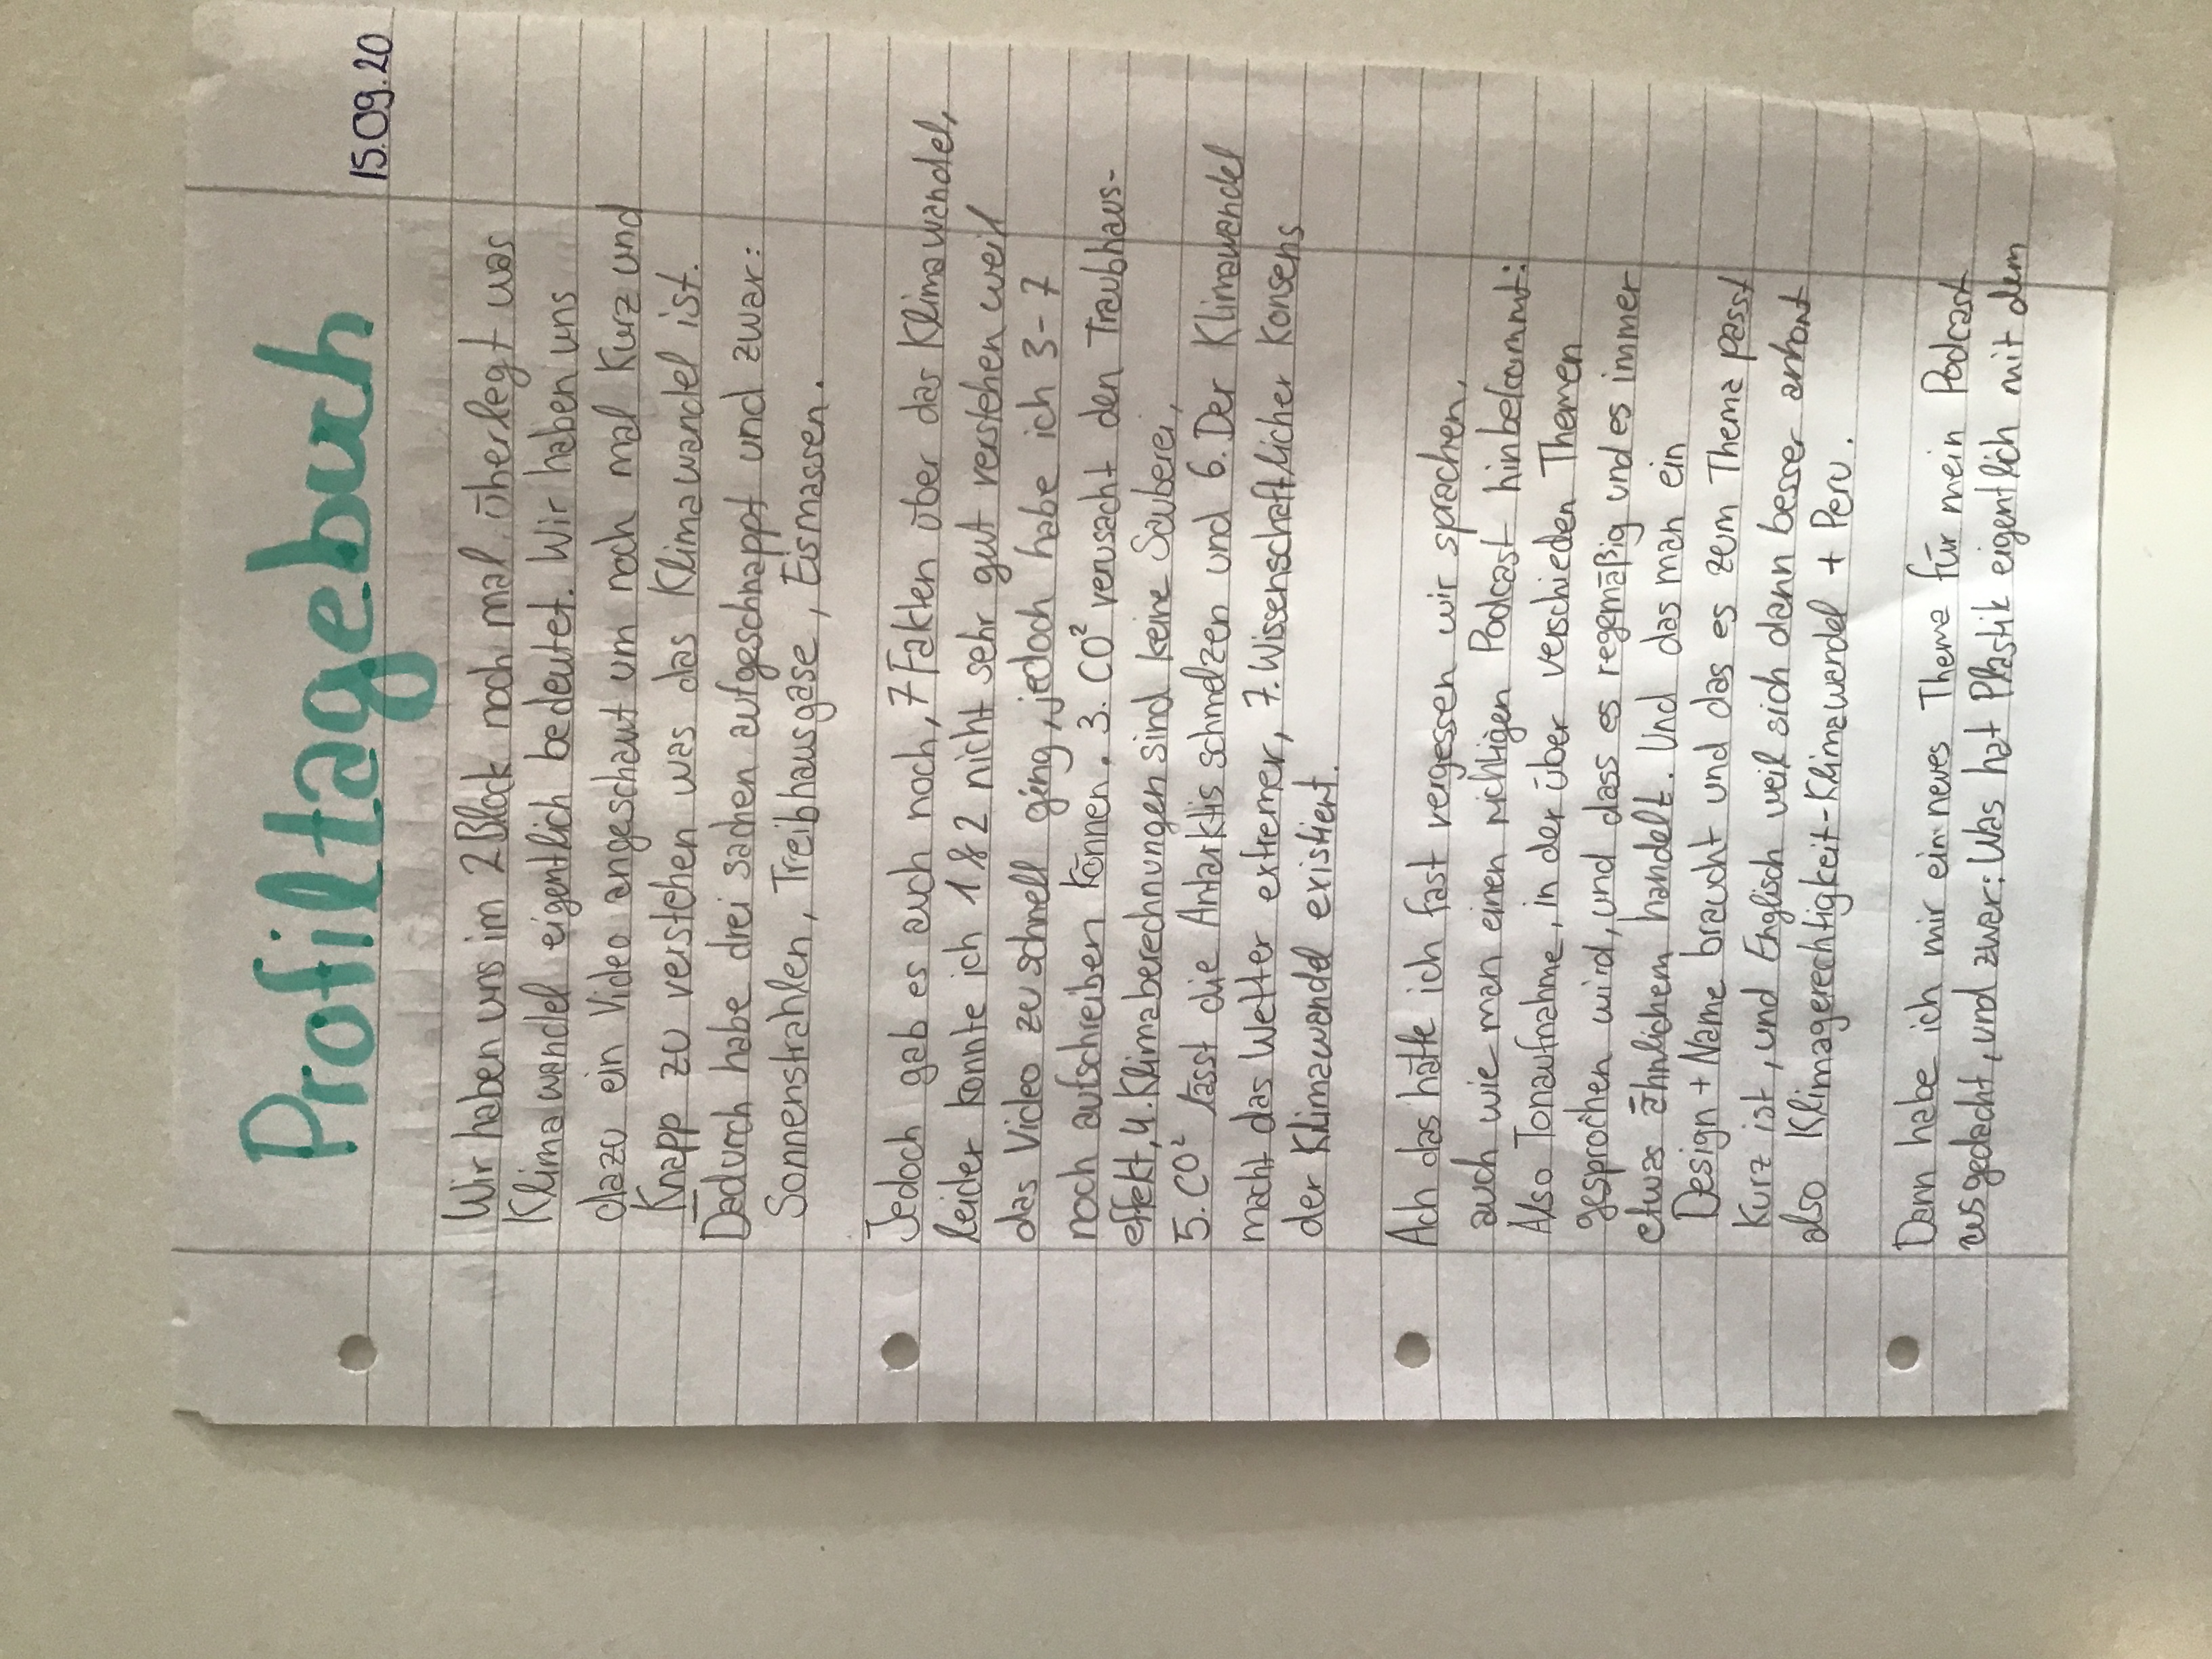 Profiltagebuch
15.09.20
Wir haben uns im 2 Block noch mal überlegt was
Klimawandel eigentlich bedeutet. Wir haben uns
dazu ein Video angeschaut um noch mal Kurz und
Knapp zu verstehen was das Klimawandel ist.
Dadurch habe drei sachen aufgeschnappt und zwar:
Sonnenstrahlen, Treibhausgase, Eismassen.
Jedoch gab es auch noch, 7 Fakten über das Klimawandel,
leider konnte ich 1 & 2 nicht sehr gut verstehen weil
das Video zu schnell ging, jedoch habe ich 3-7
noch aufschreiben können. 3. CO² verusacht den Traubhaus-
effekt, 4. Klimaberechnungen sind keine Sauberei,
5. CO² lässt die Antarktis schmelzen und 6. Der Klimawandel
macht das Wetter extremer, 7. Wissenschaftlicher Konsens
der Klimawandel existiert.
Ach das hätte ich fast vergessen wir sprachen,
auch wie man einen richtigen Podcast hinbekommt:
Also Tonaufnahme, in der über verschieden Themen
gesprochen wird, und dass es regemäßig und es immer
etwas ähnlichem handelt. Und das man ein
Design + Name braucht und das es zum Thema passt
Kurz ist, und Englisch weil sich dann besser anhört
also Klimagerechtigkeit-Klimawendel + Peru.
Dann habe ich mir ein neues Thema für mein Podcast
ausgedacht, und zwar: Was hat Plastik eigentlich mit dem